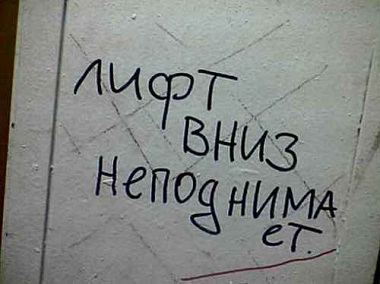 ЛИФТ
ВНИЗ
НеПОдНИМА
еТ.